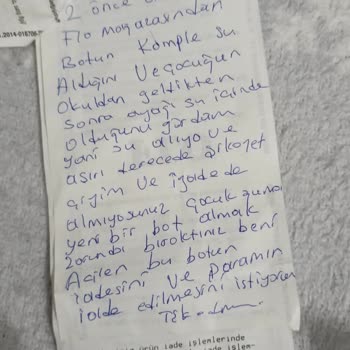 2 önce
Flo mağazasından
Botun komple su
Aldığını ve çocuğun
Okuldan geldikten
sonra ayağı su içinde
olduğunu gördüm
yani su alıyo ve
aşırı derecede şikayet
çiyim ve iyolde de
almıyosunuz çocuk
yeni bir bot almak
zorunda bıraktınız beni
Acilen bu botun
iadesini ve paramın
iade edilmesini istiyorum
Tşk.
ürün iade işlemlerinde